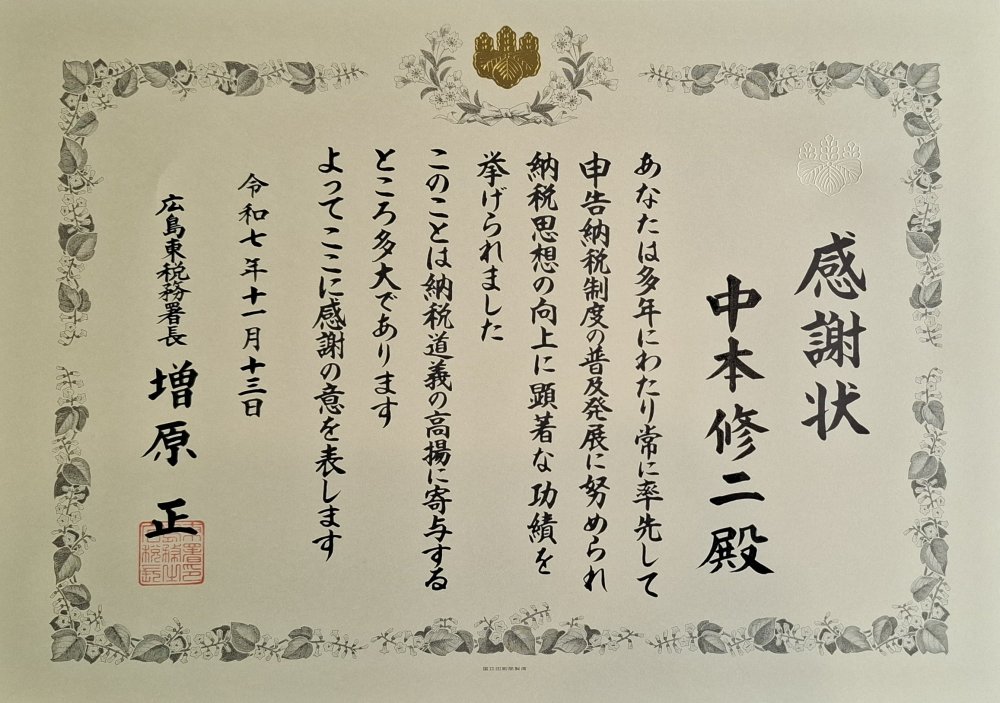 感謝状
中本修二殿
あなたは多年にわたり常に率先して
申告納税制度の普及発展に努められ
納税思想の向上に顕著な功績を
挙げられました
このことは納税道義の高揚に寄与する
ところ多大であります
よってここに感謝の意を表します
令和七年十一月十三日
広島東税務署長 増原正